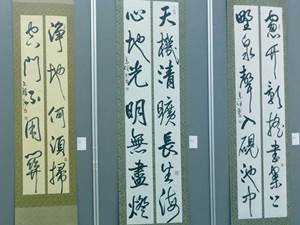 窗竹影搖書案上
野泉聲入硯池中
天機清曠長生海
心地光明無盡燈
淨地何須掃
空門不用關